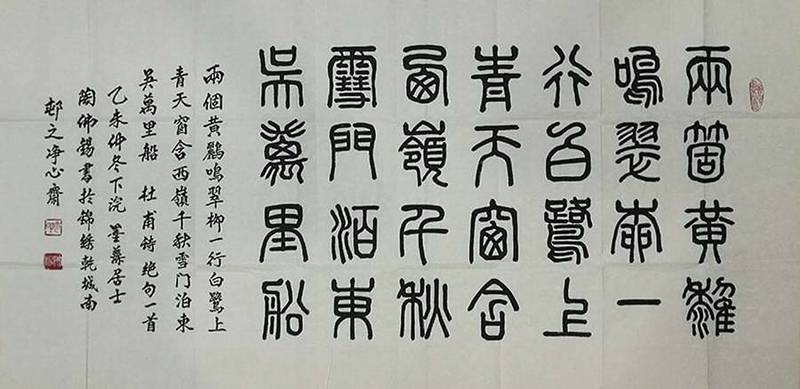 兩箇黄鸝
鳴翠柳一
行白鷺上
青天窗含
西嶺千秋
雪門泊東
吴萬里船
兩個黄鸝鳴翠柳一行白鷺上
青天窗含西嶺千秋雪门泊東
吴萬里船 杜甫诗绝句一首
乙未仲冬下浣 墨居士
陶佛錫書於錦绣乾城南
邨之净心齋